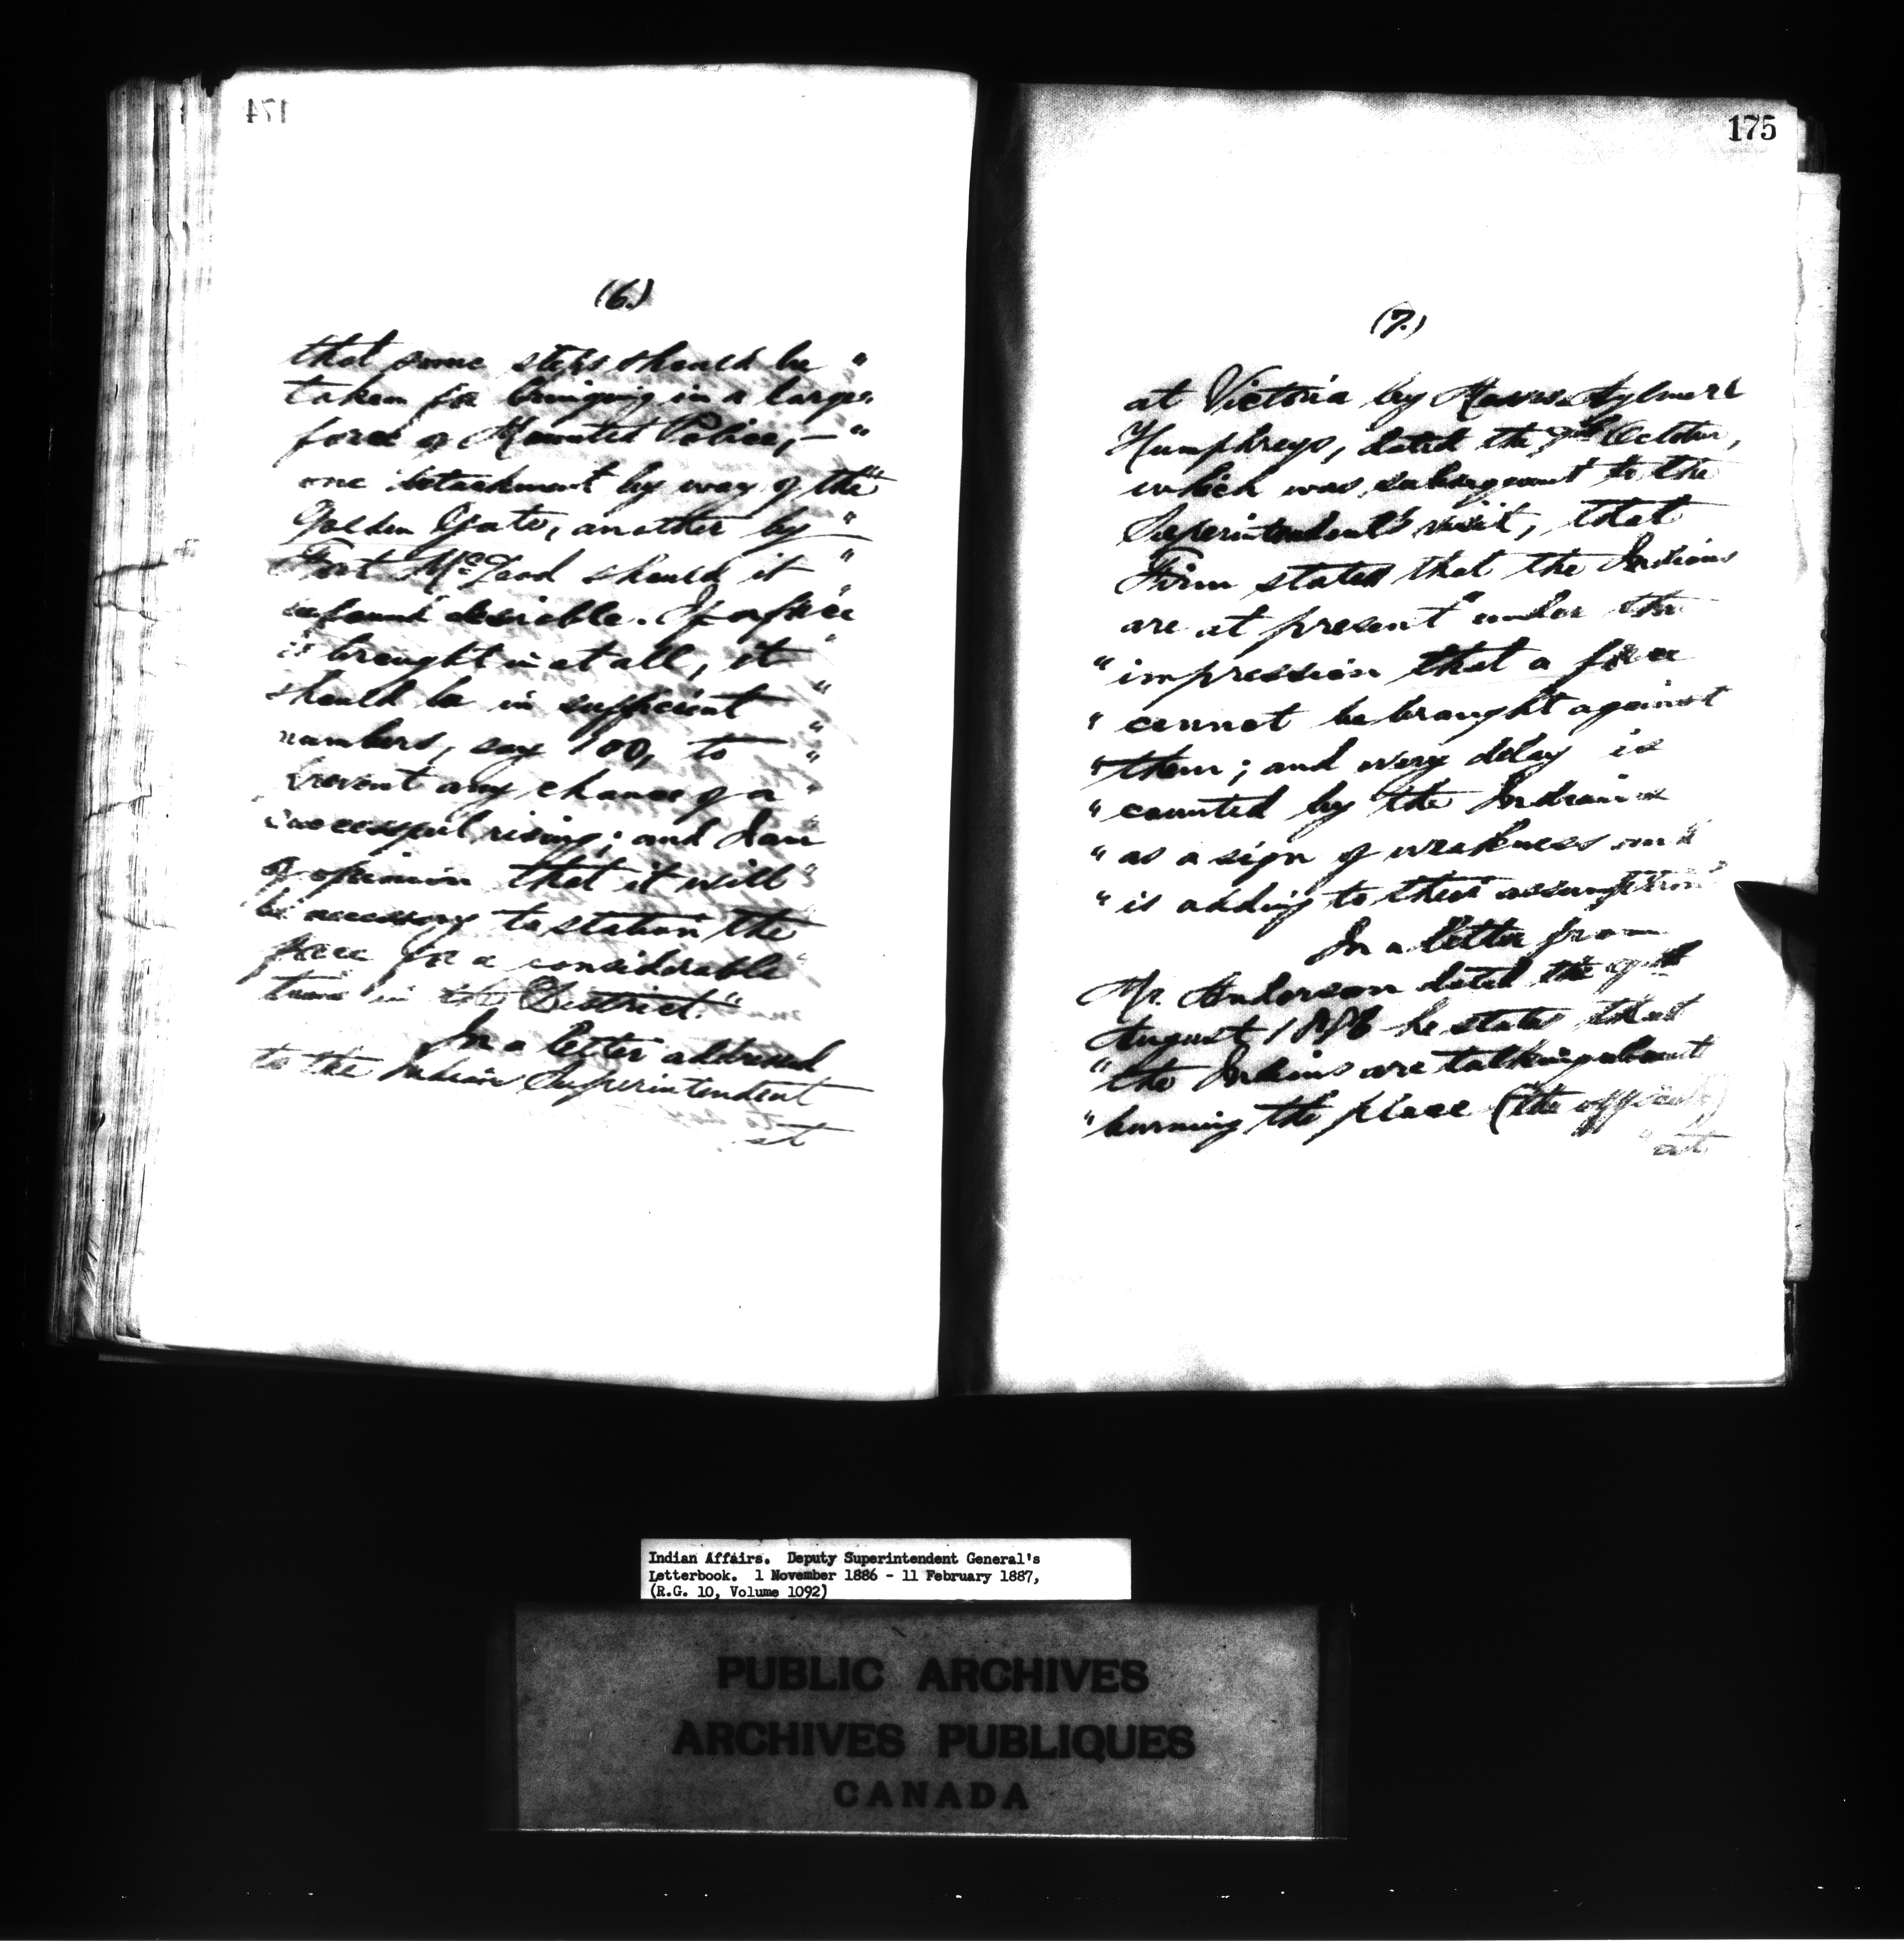 174
(6.)
that some steps should be "
taken for bringing in a large "
force of Mounted Police, — "
one detachment by way of the "
Golden Gate, another by "
Fort McLeod should it "
be found desirable. If a force "
is brought in at all, it "
should be in sufficient "
numbers, say 100, to "
prevent any chance of a "
successful rising; and I am "
of opinion that it will "
be necessary to station the "
force for a considerable "
time in the District."
In a letter addressed
to the Indian Superintendent
at
175
(7.)
at Victoria by Messrs Aylmer &
Humphreys, dated the October,
which was subsequent to the
Superintendent's visit, that
Firm states that the Indians
are at present "under the
" impression that a force
" cannot be brought against
" them; and every delay is
" counted by the Indians
" as a sign of weakness and
" is adding to their assumption"
In a letter from
Mr. Anderson dated the
August 1886 he states that
"the Indians are talking about
"burning the place (the official's)
"at
Indian Affairs. Deputy Superintendent General's
Letterbook. 1 November 1886 - 11 February 1887,
(R.G. 10, Volume 1092)
PUBLIC ARCHIVES
ARCHIVES PUBLIQUES
CANADA